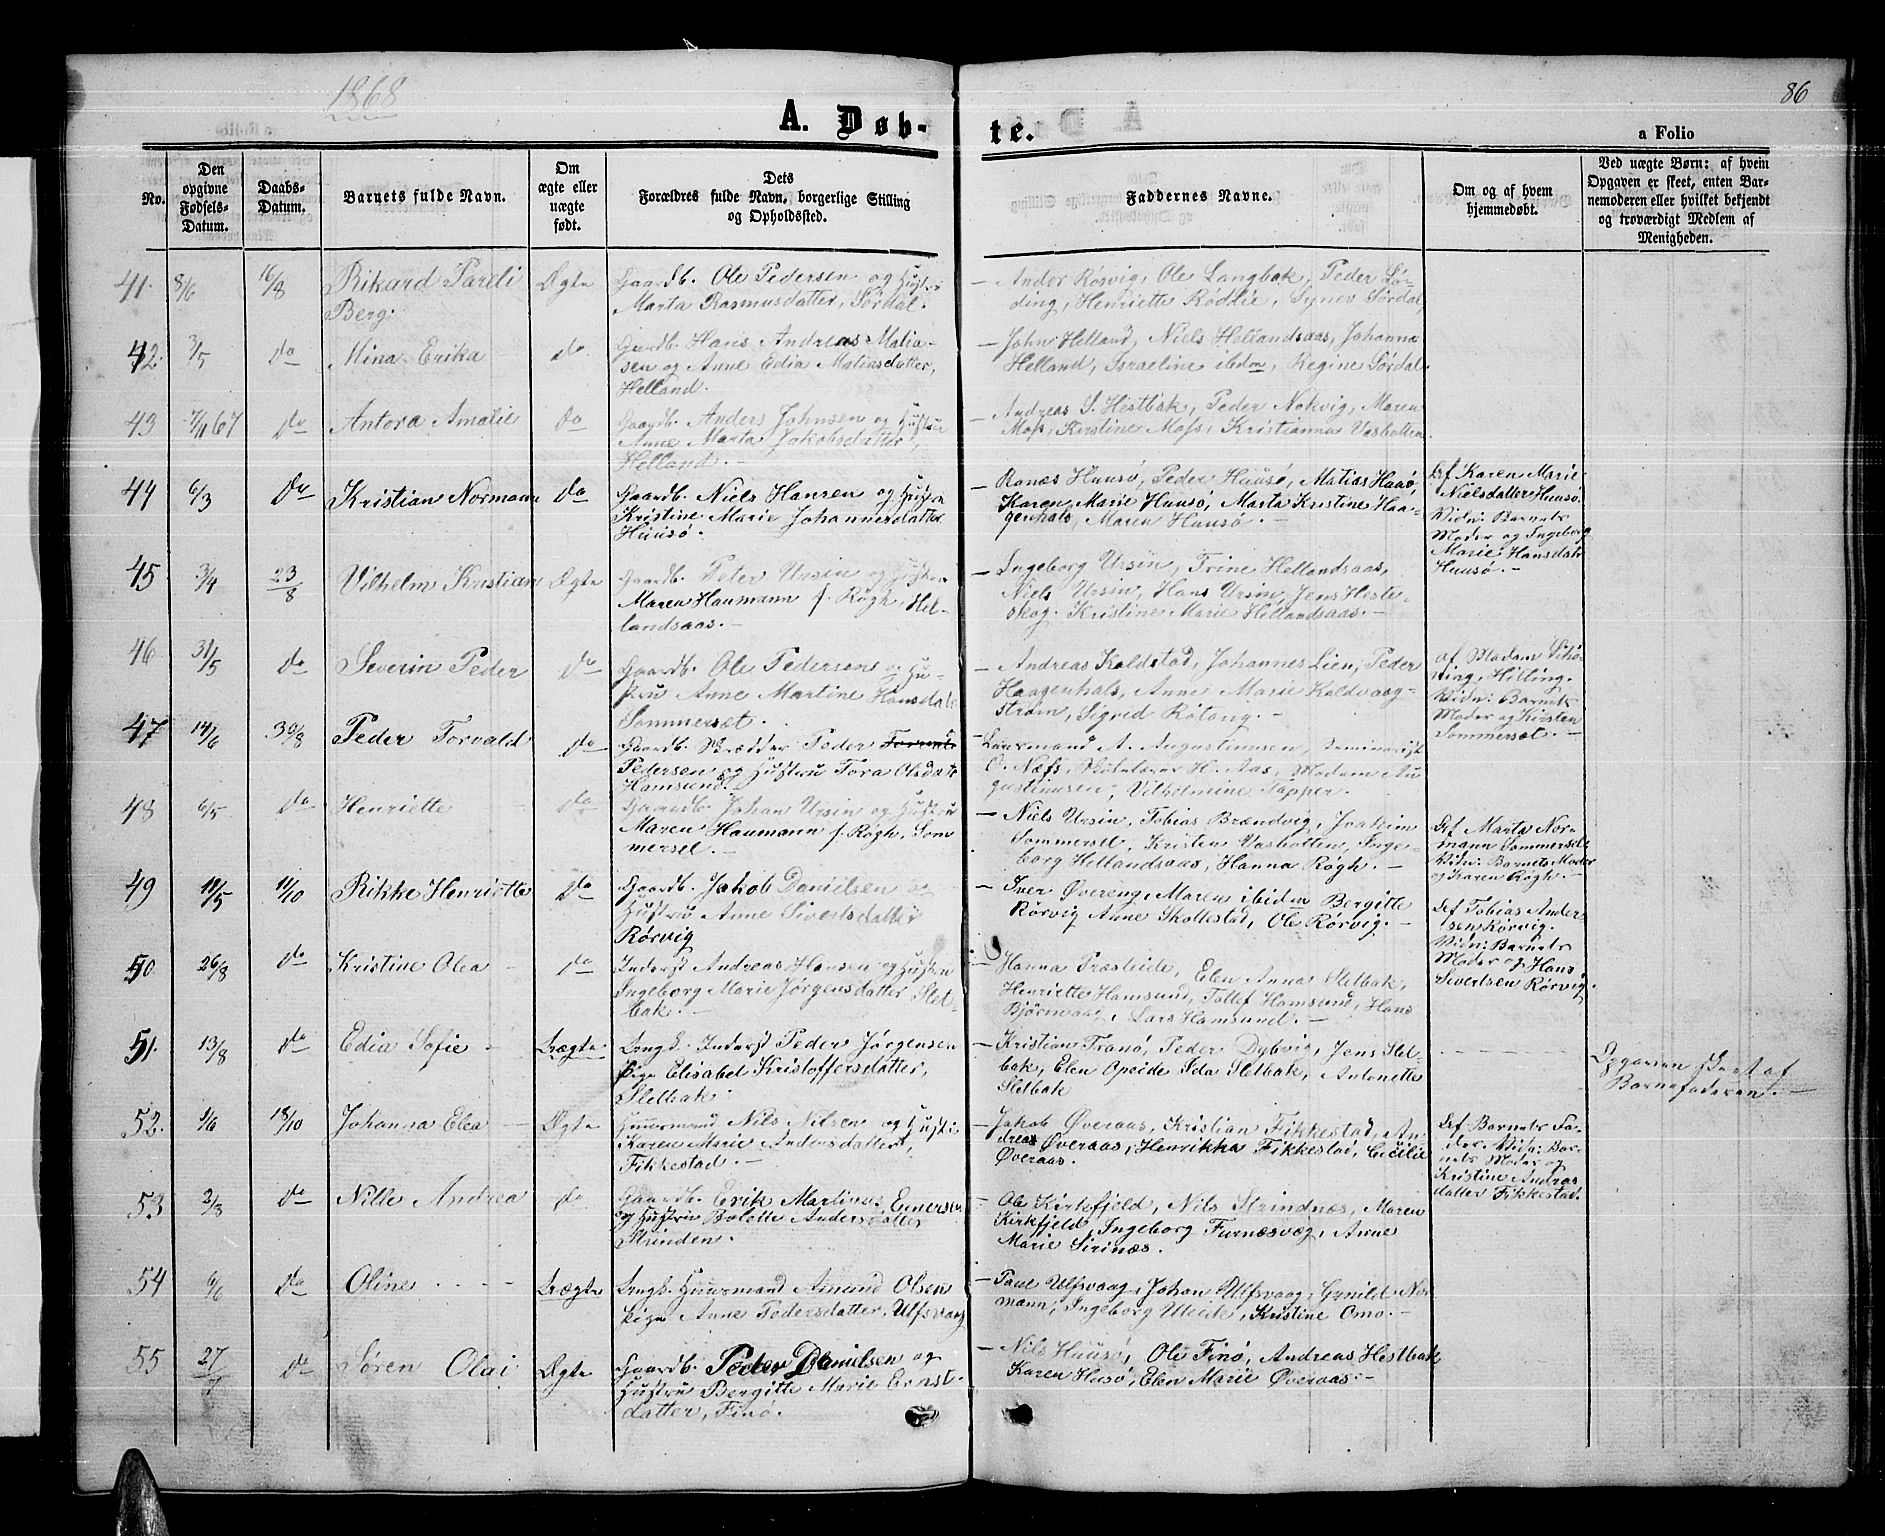 1868
86
A. Døb-
te.
a Folio
No.
Den opgivne Fødsels-Datum.
Daabs-Datum.
Barnets fulde Navn.
Om ægte eller uægte født.
Dets Forældres fulde Navn, borgerlige Stilling og Opholdssted.
Faddernes Navne.
Om og af hvem hjemmedøbt.
Ved uægte Børn: af hvem Opgaven er skeet, enten Barnemoderen eller hvilket bekjendt og troværdigt Medlem af Menigheden.
41. 8/6 16/8 Rikard Pareli Ægte Gaardb. Ole Pedersen og Hustru
Berg. Marta Rasmusdatter, Sørdal.
— Andor Rørvig, Ole Langbak, Peder Lø-
ding, Henriette Rødlie, Synev Sørdal,
42. 3/5 do Mina Erika do Gaardb. Hans Andreas Matia-
sen og Anne Edia Matiasdatter,
Helland.
— John Helland, Niels Hellandsaas, Johanna
Helland, Israeline ibedm, Regine Sørdal.
43 7/11 67 do Antora Amalie do Gaardb. Anders Johnsen og Hustru
Anne Marta Jakobsdatter,
Helland. —
— Andreas S. Hestbak, Peder Nokvig, Maren
Moss, Kirstine Moss, Kristianna Vasbotten.
44 6/3 do Kristian Normann do Gaardb. Niels Hansen og Hustru
Kristine Marie Johannesdatter
Huusø.
— Ranæs Huusø, Peder Huusø, Matias Haaø,
Karen Marie Huusø, Marta Kristine Haa-
genhals, Maren Huusø. —
Af Karen Marie
Nielsdatter Huusø.
Vidn: Barnets
Moder og Ingeborg
Marie Hansdatr
Huusø. —
45 3/4 23/8 Vilhelm Kristian Ægte Gaardb. Peter Ursin og Hustru
Maren Haumann f. Røgh, Hel-
landsaas. —
— Ingeborg Ursin, Trine Hellandsaas,
Niels Ursin, Hans Ursin, Jens Heste-
skog. Kristine Marie Hellandsaas. —
46 31/5 do Severin Peder do Gaardb. Ole Pedersen og Hu-
stru Anne Martine Hansdatr
Sommerset.
— Andreas Koldstad, Johannes Lien, Peder
Haagenhals, Anne Marie Koldvaag-
strøm, Sigrid Røtang. —
af Madam Schø-
ning, Hilling.
Vidn: Barnets
Moder og Kirsten
Sommerset. —
47 14/6 30/8 Peder Torvald do Gaardb. Skrædder Peder
Pedersen og Hustru Tora Olsdatr
Hamsund.
— Lensmand A. Augustinusen, Seminarist
O. Næss, Skolelærer H. Aas, Madam Au-
gustinusen, Vilhelmine Tapper.
48 6/5 do Henriette do Gaardb. Johan Ursin og Hustru
Maren Haumann f. Røgh, Som-
mersel. —
— Niels Ursin, Tobias Brændvig, Joakim
Sommersel, Kristen Vasbotten, Inge-
borg Hellandsaas, Hanna Røgh. —
Af Marta Nor-
mann Sommersel.
Vidn: Barnets Moder
og Karen Røgh. —
49 11/5 11/10 Rikke Henriette do Gaardb. Jakob Danielsen og
Hustru Anne Sivertsdatter
Rørvig
— Iver Øvereng, Maren ibidem Bergitte
Rørvig Anne Skottestad, Ole Rørvig. —
Af Tobias Ander
sen Rørvig.
Vidn: Barnets
Moder og Hans
Sivertsen Rørvig.
50. 26/8 do Kristine Olea do Inderst Andreas Hansen og Hustru
Ingeborg Marie Jørgensdatter Slet-
bak.
Hanna Præsteide, Elen Anna Sletbak,
Henriette Hamsund, Tollef Hamsund, Hans
Bjørnvaag, Lars Hamsund. —
51. 13/8 do Edia Sofie Uægte Ungk. Inderst Peder Jørgensen
Pige Elisabet Kristoffersdatter,
Sletbak.
— Kristian Tranø, Peder Dybvig, Jens Slet-
bak, Elen Opeide Ida Sletbak, Antonette
Sletbak
Opgaven skeet af
Barnefaderen. —
52. 1/6 18/10 Johanna Elea Ægte Huusmand Nils Nilsen og Hustru
Karen Marie Andersdatter,
Fikkestad. —
Jakob Øveraas, Kristian Fikkestad, An-
dreas Øveraas, Henrikka Fikkestad, Cecilie
Øveraas.
Af Barnets Fa-
der. Vidn: Bar-
nets Moder og
Kristine Andreas
datter Fikkestad.
53 3/8 do Nille Andrea do Gaardb. Erik Martinus Enersen
og Hustru Bolette Andersdatter
Strinden.
— Ole Kirkfjeld, Nils Strindnes, Maren
Kirkfjeld, Ingeborg Furnæsvæg, Anne
Marie Sirinæs.
54 6/6 do Oline Uægte Ungk. Huusmand Amund Olsen
Pige Anne Pedersdatter, Ulfsvaag
— Paul Ulfsvaag, Johan Ulfsvaag, Gunild Nor
mann, Ingeborg Uleik, Kristine Omo. —
55 27/7 do Søren Olai Ægte Gaardb. Peder Danielsen og
Hustru Bergitte Marie Ernst-
datter, Finø.
— Nils Huusø, Ole Finø, Andreas Hestbak
Karen Husø, Elen Marie Øveraas. —